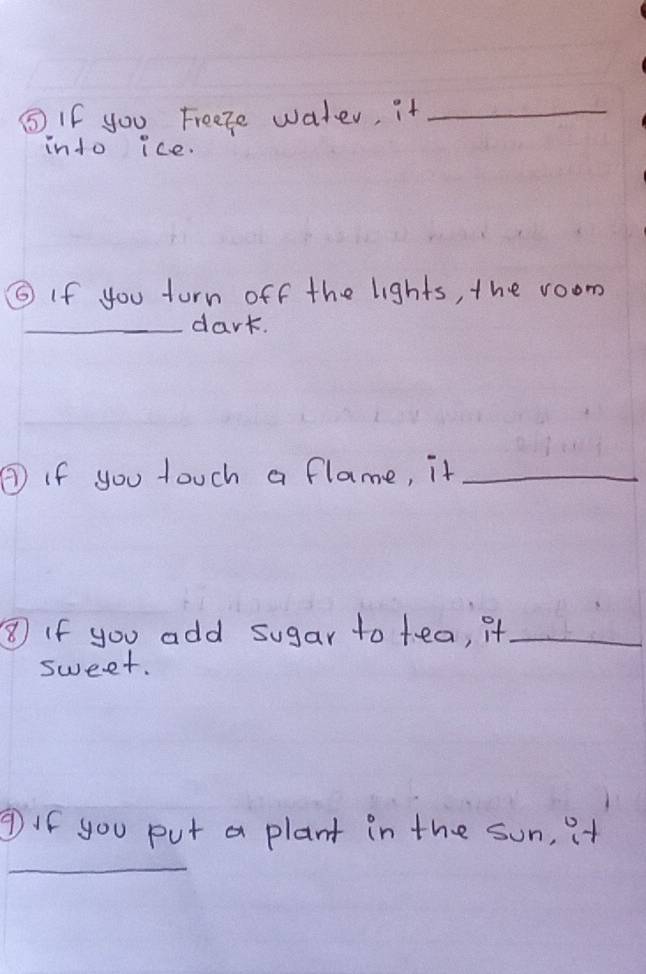 ⑤ If you Freeze water, it ________
into ice.
⑥ if you turn off the lights, the room
________ dark.
⑦ if you touch a flame, it ________
⑧ if you add sugar to tea, it ________
sweet.
⑨ if you put a plant in the sun, it
________